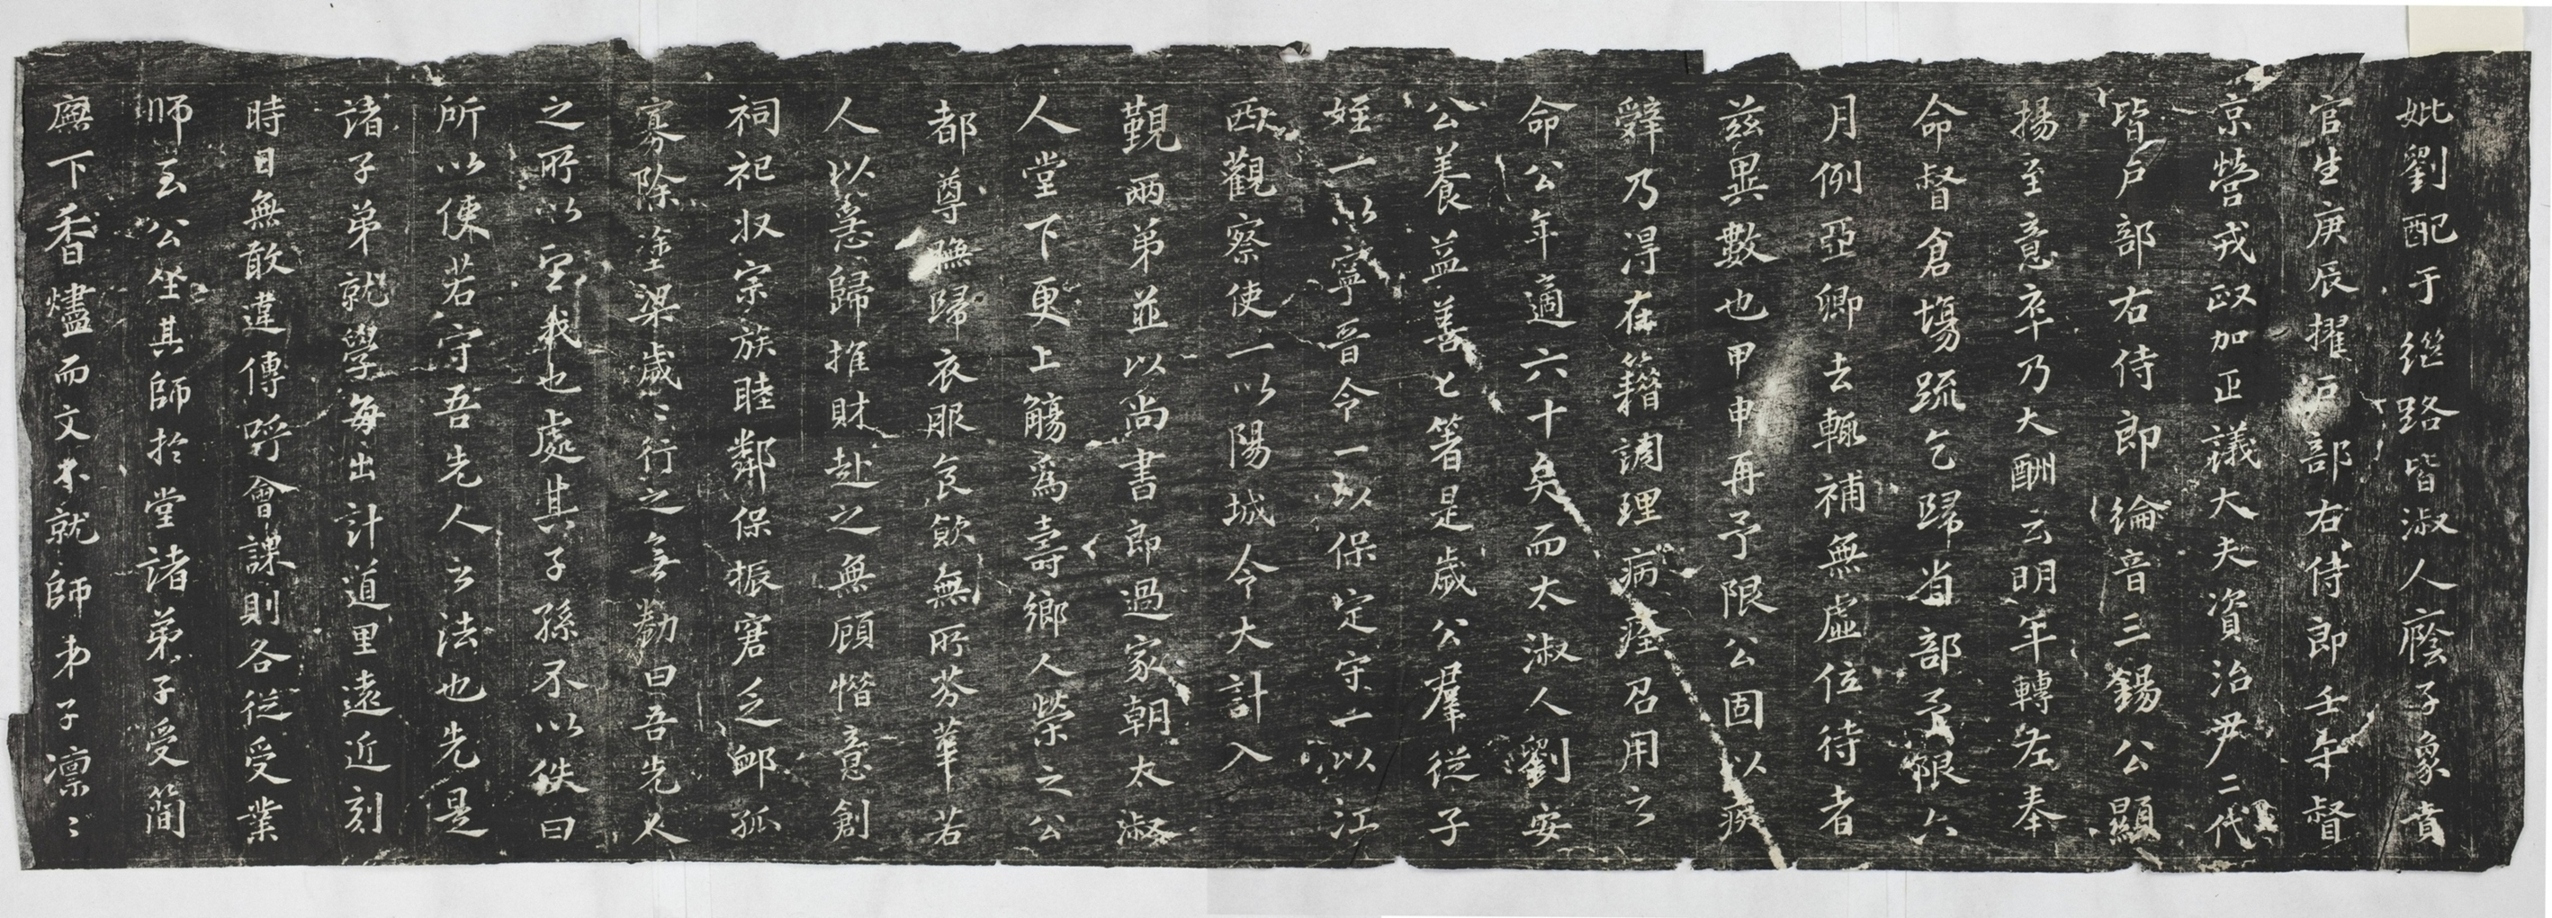 妣劉配于繼路皆淑人廕子象賁
官生庚辰擢戶部右侍郎壬午督
京營戎政加正議大夫資治尹二代
皆戶部右侍郎綸音三錫公顯
揚至意卒乃大酬云明年轉左奉
命督倉場疏乞歸省部予限六
月例亞卿去輒補無虛位待者
茲異數也甲申再予限公固以疾
辭乃得在籍調理病痊召用之
命公年適六十矣而太淑人劉安
公養益善匕箸是歲公羣從子
姪一以寧晉令一以保定守一以江
西觀察使一以陽城令大計入
觀兩弟並以尚書郎過家朝太淑
人堂下更上觴為壽鄉人榮之公
都尊撫歸衣服食飲無所芬華若
人以恚歸推財赴之無顧惜意創
祠祀收宗族睦鄰保振窘乏卹孤
寡除塗梁歲〻行之無勌曰吾先人
之所以室我也處其子孫不以佚曰
所以使若守吾先人之法也先是
諸子弟就學每出計道里遠近刻
時日無敢違傳呼會課則各從受業
師至公坐其師於堂諸弟子受簡
廡下香燼而文不就師弟子凛〻